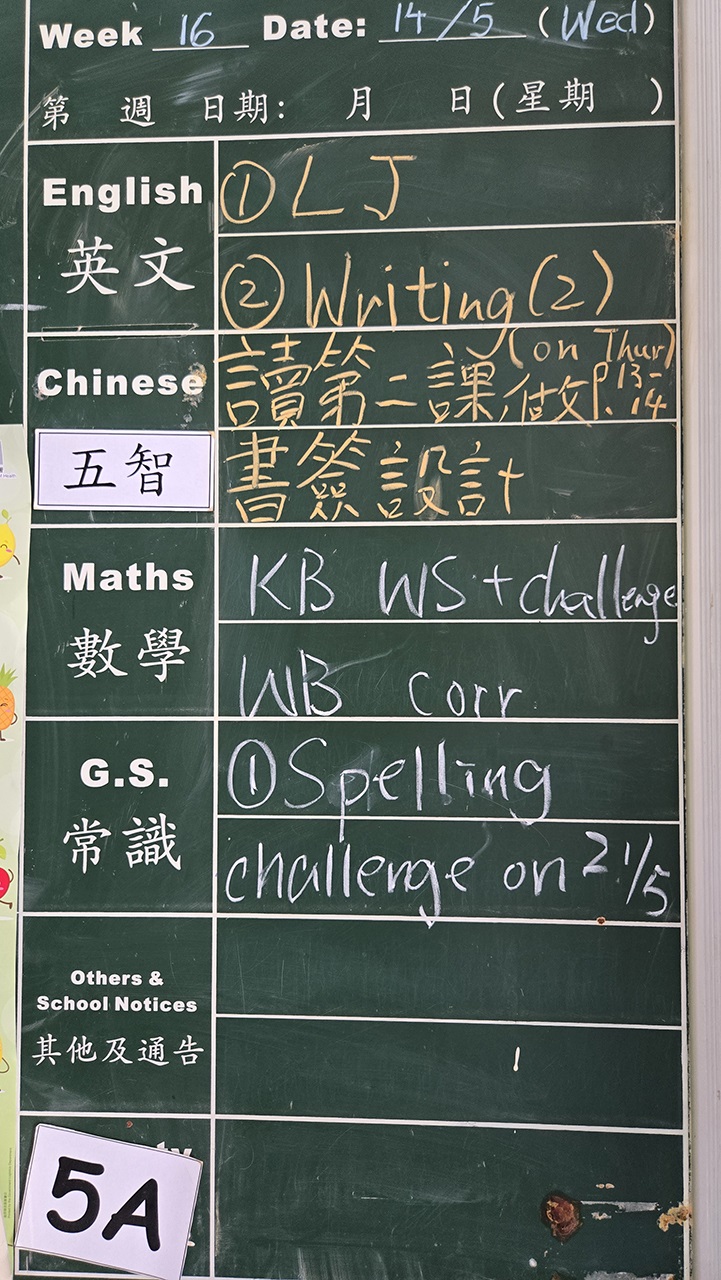 Week 16 Date: 14/5 (Wed)
第 週 日期: 月 日(星期 )
English
英文
① L J
② Writing(2)
(on Thur)
Chinese
讀第二課,做P.13-14
五智
書簽設計
Maths
數學
KB WS + challenge
WB corr.
G.S.
常識
① Spelling
challenge on 21/5
Others &
School Notices
其他及通告
5A